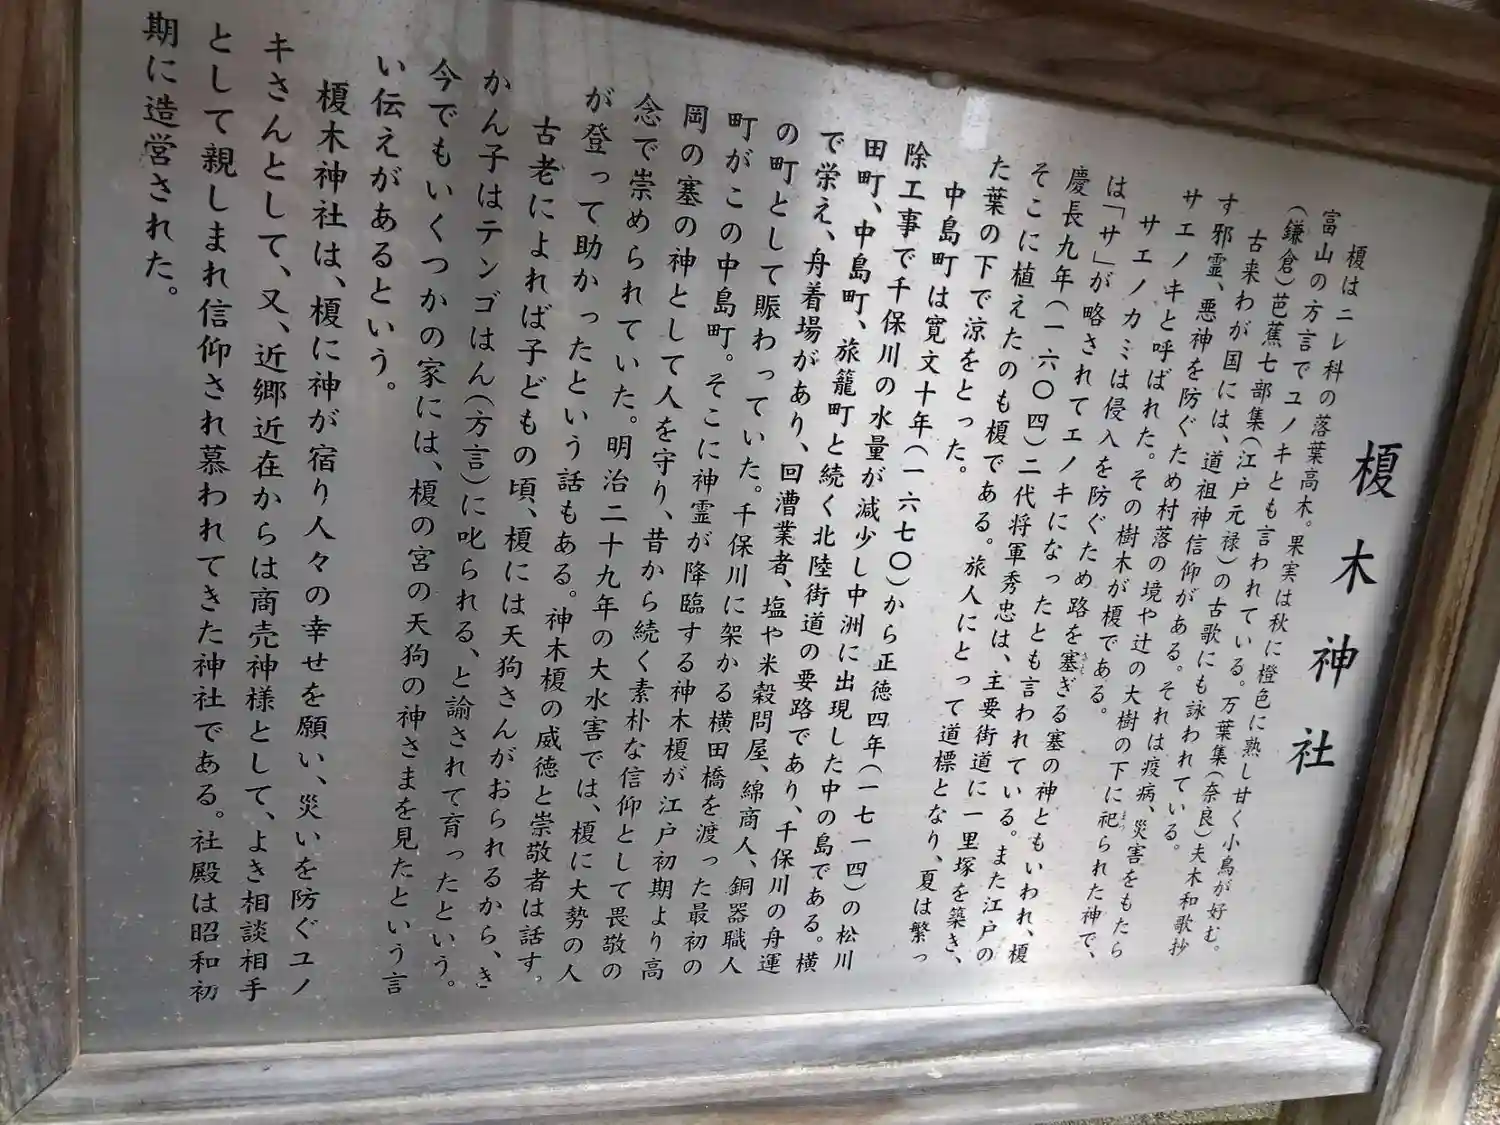 榎木神社
榎はニレ科の落葉高木。果実は秋に橙色に熟し甘く小鳥が好む。
富山の方言でユノキとも言われている。万葉集(奈良)夫木和歌抄
(鎌倉)芭蕉七部集(江戸元禄)の古歌にも詠われている。
古来わが国には、道祖神信仰がある。それは疫病、災害をもたら
す邪霊、悪神を防ぐため村落の境や辻の大樹の下に祀られた神で、
サエノキと呼ばれた。その樹木が榎である。
サエノカミは侵入を防ぐため路を塞ぎる塞の神ともいわれ、榎
は「サ」が略されてエノキになったとも言われている。また江戸の
慶長九年(一六〇四)二代将軍秀忠は、主要街道に一里塚を築き、
そこに植えたのも榎である。旅人にとって道標となり、夏は繁っ
た葉の下で涼をとった。
中島町は寛文十年(一六七〇)から正徳四年(一七一四)の松川
除工事で千保川の水量が減少し中洲に出現した中の島である。横
田町、中島町、旅籠町と続く北陸街道の要路であり、千保川の舟運
で栄え、舟着場があり、回漕業者、塩や米穀問屋、綿商人、銅器職人
の町として賑わっていた。千保川に架かる横田橋を渡った最初の
町がこの中島町。そこに神霊が降臨する神木榎が江戸初期より高
岡の塞の神として人を守り、昔から続く素朴な信仰として畏敬の
念で崇められていた。明治二十九年の大水害では、榎に大勢の人
が登って助かったという話もある。神木榎の威徳と崇敬者は話す。
古老によれば子どもの頃、榎には天狗さんがおられるから、き
かん子はテンゴはん(方言)に叱られる、と諭されて育ったという。
今でもいくつかの家には、榎の宮の天狗の神さまを見たという言
い伝えがあるという。
榎木神社は、榎に神が宿り人々の幸せを願い、災いを防ぐユノ
キさんとして、又、近郷近在からは商売神様として、よき相談相手
として親しまれ信仰され慕われてきた神社である。社殿は昭和初
期に造営された。